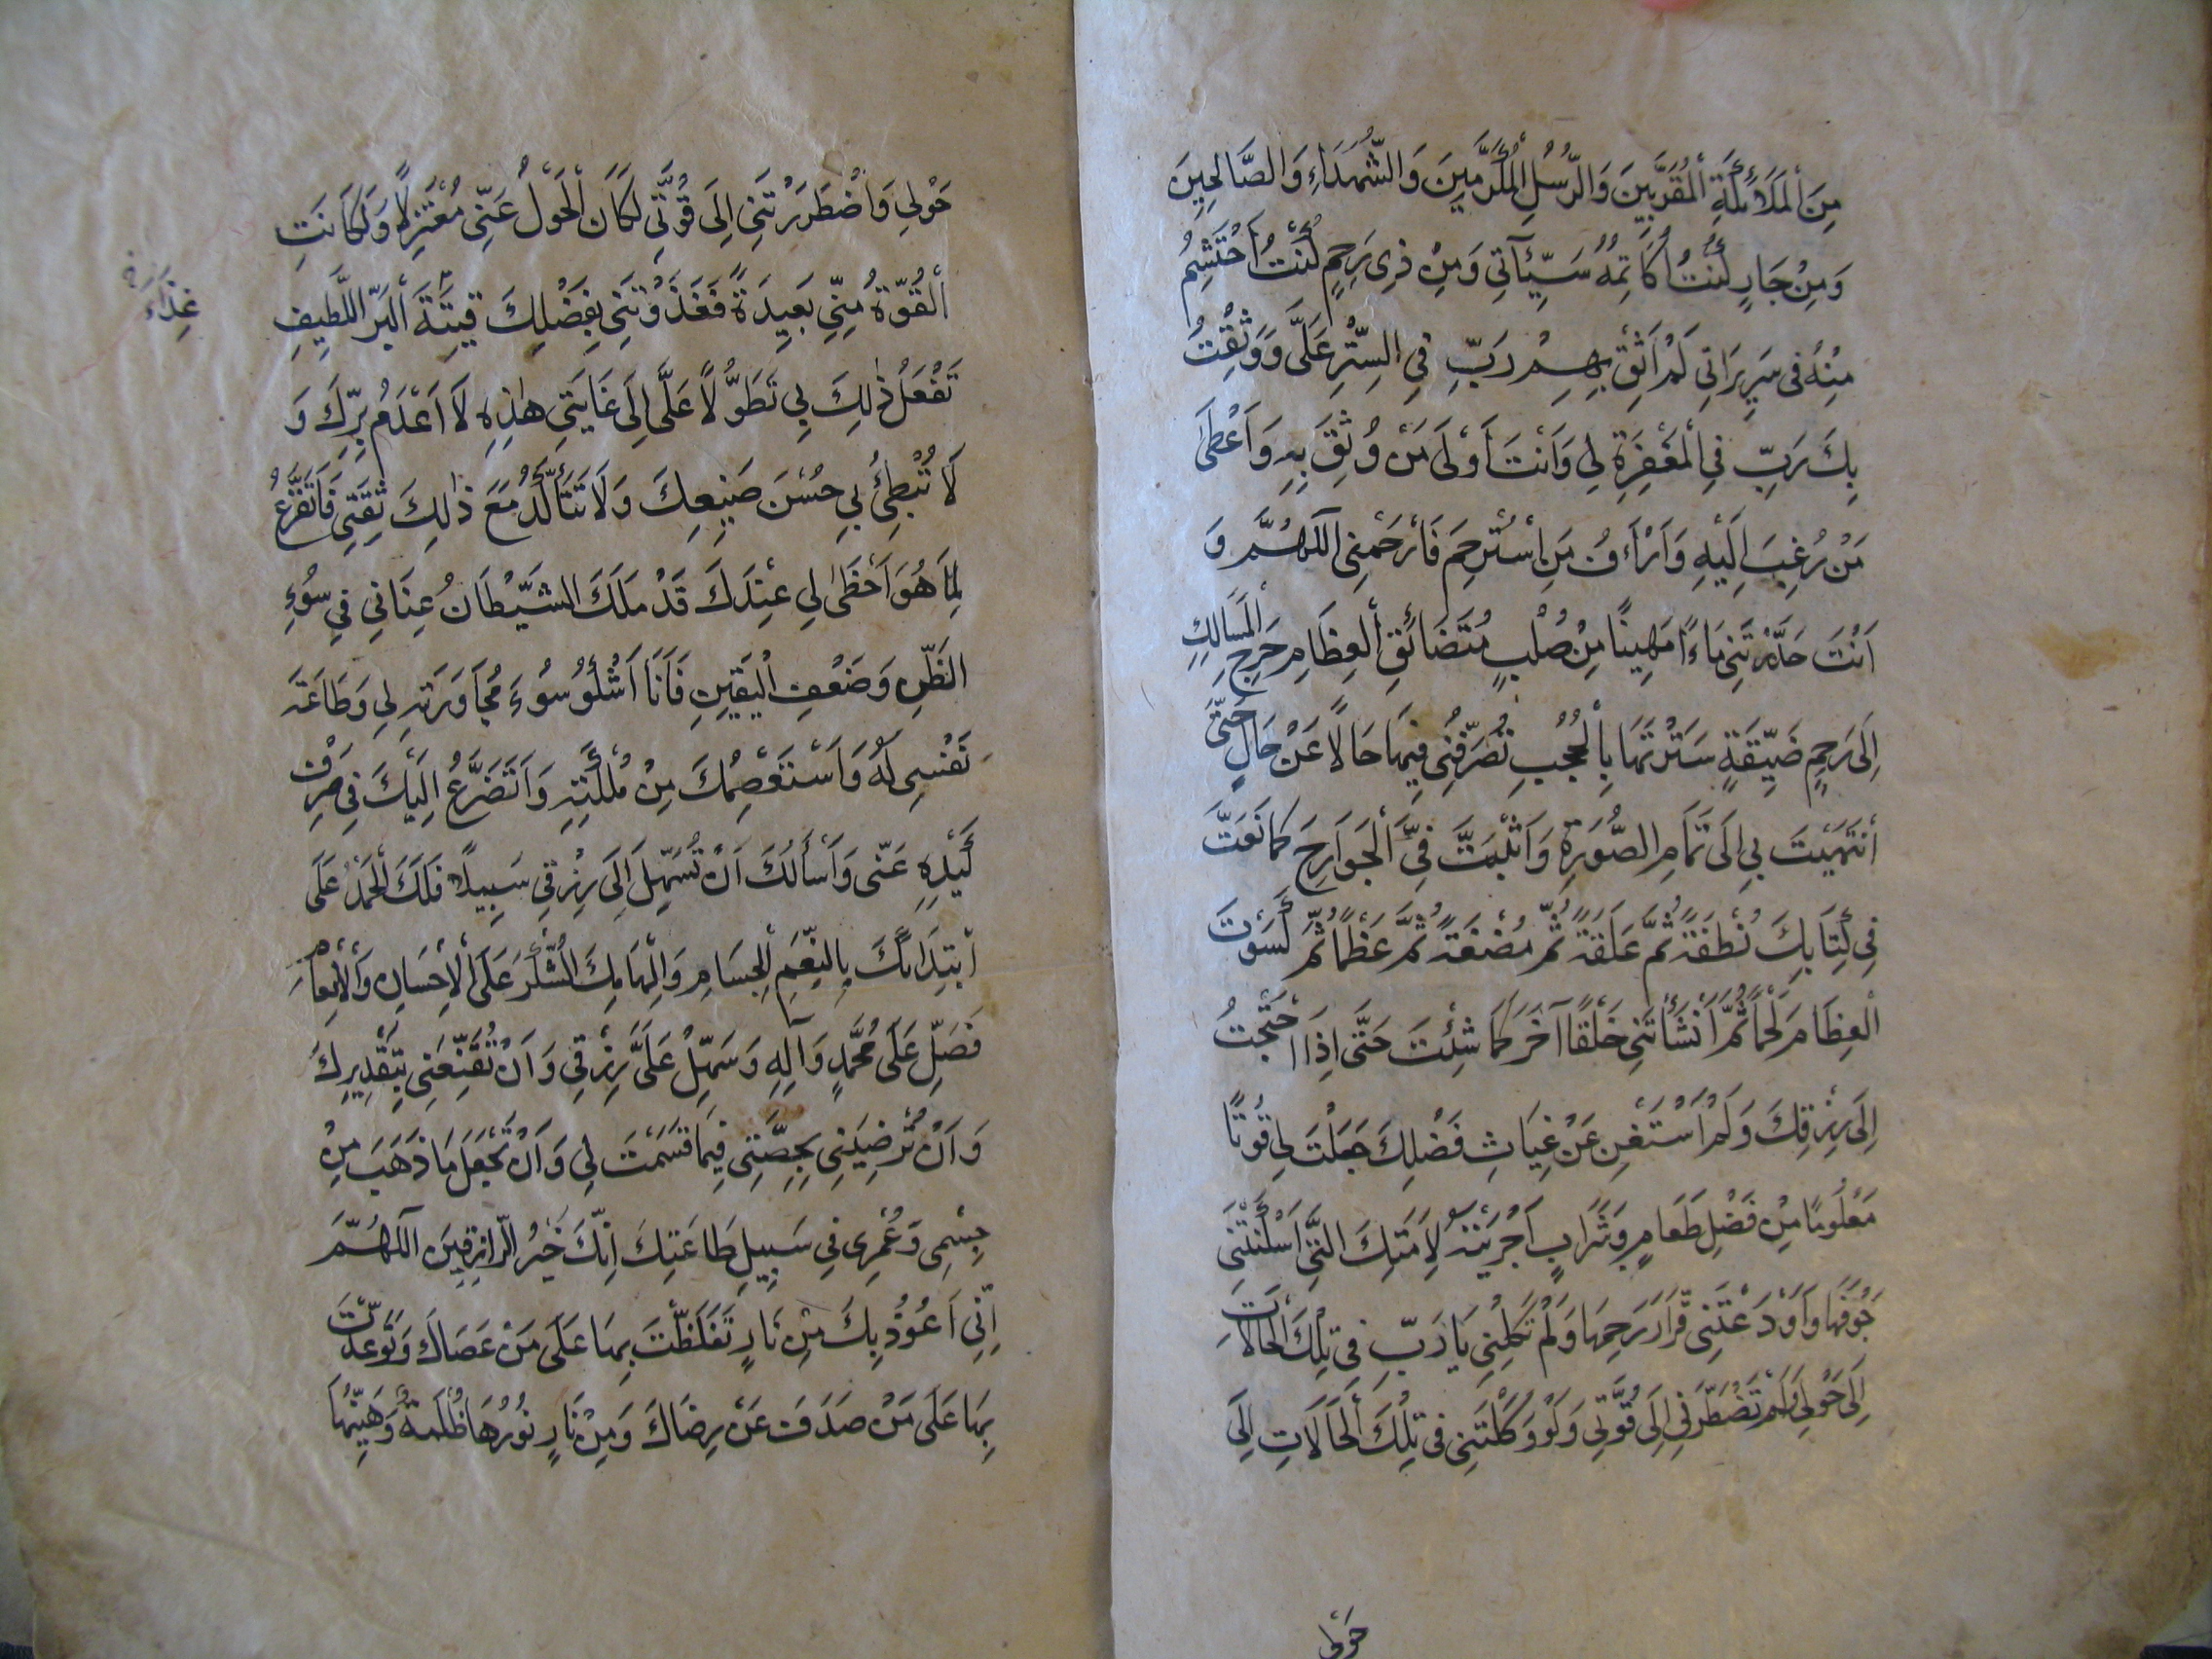 مِنَ الْمَلَائِكَةِ الْمُقَرَّبِينَ وَالرُّسُلِ الْمُكَرَّمِينَ وَالشُّهَدَاءِ وَالصَّالِحِينَ
وَمِنْ جَارٍ كُنْتُ أُكَاتِمُهُ سَيِّئَاتِي وَمِنْ ذِي رَحِمٍ كُنْتُ أَحْتَشِمُ
مِنْهُ فِي سَرِيرَاتِي لَمْ أَثِقْ بِهِمْ رَبِّ فِي السِّتْرِ عَلَيَّ وَوَثِقْتُ
بِكَ رَبِّ فِي الْمَغْفِرَةِ لِي وَأَنْتَ أَوْلَى مَنْ وُثِقَ بِهِ وَأَعْطَى
مَنْ رُغِبَ إِلَيْهِ وَأَرْأَفُ مَنِ اسْتُرْحِمَ فَارْحَمْنِي اللَّهُمَّ وَ
أَنْتَ حَدَرْتَنِي مَاءً مَهِينًا مِنْ صُلْبٍ مُتَضَائِقِ الْعِظَامِ حَرِجِ الْمَسَالِكِ
إِلَى رَحِمٍ ضَيِّقَةٍ سَتَرْتَهَا بِالْحُجُبِ تُصَرِّفُنِي فِيهَا حَالًا عَنْ حَالٍ حَتَّى
انْتَهَيْتَ بِي إِلَى تَمَامِ الصُّورَةِ وَأَثْبَتَّ فِيَّ الْجَوَارِحَ كَمَا نَعَتَّ
فِي كِتَابِكَ نُطْفَةً ثُمَّ عَلَقَةً ثُمَّ مُضْغَةً ثُمَّ عَظْمًا ثُمَّ كَسَوْتَ
الْعِظَامَ لَحْمًا ثُمَّ أَنْشَأْتَنِي خَلْقًا آخَرَ كَمَا شِئْتَ حَتَّى إِذَا احْتَجْتُ
إِلَى رِزْقِكَ وَلَمْ أَسْتَغْنِ عَنْ غِيَاثِ فَضْلِكَ جَعَلْتَ لِي قُوتًا
مَعْلُومًا مِنْ فَضْلِ طَعَامٍ وَشَرَابٍ أَجْرَيْتَهُ لِأَمَتِكَ الَّتِي أَسْكَنْتَنِي
جَوْفَهَا وَأَوْدَعْتَنِي قَرَارَ رَحِمِهَا وَلَمْ تَكِلْنِي يَا رَبِّ فِي تِلْكَ الْحَالَاتِ
إِلَى حَوْلِي وَلَمْ تَضْطَرَّنِي إِلَى قُوَّتِي وَلَوْ وَكَلْتَنِي فِي تِلْكَ الْحَالَاتِ إِلَى
حَوْلِي
حَوْلِي وَاضْطَرَرْتَنِي إِلَى قُوَّتِي لَكَانَ الْحَوْلُ عَنِّي مُعْتَزِلًا وَلَكَانَتِ
الْقُوَّةُ مِنِّي بَعِيدَةً فَغَذَوْتَنِي بِفَضْلِكَ قِيتَةَ الْبَرِّ اللَّطِيفِ
غِذَاءَ خ
تَفْعَلُ ذٰلِكَ بِي تَطَوُّلًا عَلَيَّ إِلَى غَايَتِي هٰذِهِ لَا أَعْدَمُ بِرَّكَ وَ
لَا تُبْطِئُ بِي حُسْنَ صَنِيعِكَ وَلَا تَتَأَكَّدُ مَعَ ذٰلِكَ ثِقَتِي فَأَتَفَرَّغُ
لِمَا هُوَ أَحْظَى لِي عِنْدَكَ قَدْ مَلَكَ الشَّيْطَانُ عِنَانِي فِي سُوءِ
الظَّنِّ وَضَعْفِ الْيَقِينِ فَأَنَا أَشْكُو سُوءَ مُجَاوَرَتِهِ لِي وَطَاعَةَ
نَفْسِي لَهُ وَأَسْتَعْصِمُكَ مِنْ مَلَكَتِهِ وَأَتَضَرَّعُ إِلَيْكَ فِي صَرْفِ
كَيْدِهِ عَنِّي وَأَسْأَلُكَ أَنْ تُسَهِّلَ إِلَى رِزْقِي سَبِيلًا فَلَكَ الْحَمْدُ عَلَى
ابْتِدَائِكَ بِالنِّعَمِ الْجِسَامِ وَإِلْهَامِكَ الشُّكْرَ عَلَى الْإِحْسَانِ وَالْإِنْعَامِ
فَصَلِّ عَلَى مُحَمَّدٍ وَآلِهِ وَسَهِّلْ عَلَيَّ رِزْقِي وَأَنْ تُقَنِّعَنِي بِتَقْدِيرِكَ
وَأَنْ تُرْضِيَنِي بِحِصَّتِي فِيمَا قَسَمْتَ لِي وَأَنْ تَجْعَلَ مَا ذَهَبَ مِنْ
جِسْمِي وَعُمْرِي فِي سَبِيلِ طَاعَتِكَ إِنَّكَ خَيْرُ الرَّازِقِينَ اللَّهُمَّ
إِنِّي أَعُوذُ بِكَ مِنْ نَارٍ تَغَلَّظْتَ بِهَا عَلَى مَنْ عَصَاكَ وَتَوَعَّدْتَ
بِهَا عَلَى مَنْ صَدَفَ عَنْ رِضَاكَ وَمِنْ نَارٍ نُورُهَا ظُلْمَةٌ وَهَيِّنُهَا